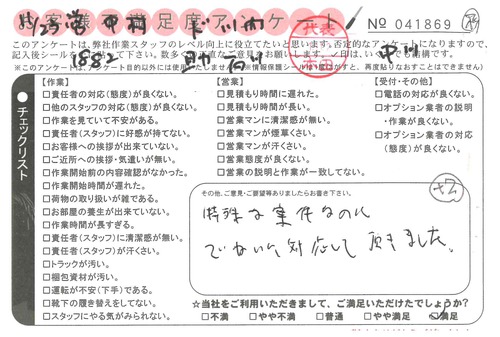 お客様満足度アンケート
No 041869
このアンケートは、弊社作業スタッフのレベル向上に役立てたいと思います。否定的なアンケートになりますので、
11/25 営 中村
1882
中川
代表
本田
チェックリスト
【作業】
□責任者の対応(態度)が良くない。
□他のスタッフの対応(態度)が良くない。
□作業を見ていて不安がある。
□責任者(スタッフ)に好感が持てない。
□お客様への挨拶が出来ていない。
□ご近所への挨拶・気遣いが無い。
□作業開始前の内容確認がなかった。
□作業開始時間が遅れた。
□荷物の取り扱いが雑である。
□お部屋の養生が出来ていない。
□作業時間が長すぎる。
□責任者(スタッフ)に清潔感が無い。
□責任者(スタッフ)が汗くさい。
□トラックが汚い。
□梱包資材が汚い。
□運転が不安(下手)である。
□靴下の履き替えをしてない。
□スタッフにやる気がみられない。
【営業】
□見積もり時間に遅れた。
□見積もり時間が長い。
□営業マンに清潔感が無い。
□営業マンが煙草くさい。
□営業マンが汗くさい。
□営業態度が良くない。
□営業の説明と作業が一致してない。
【受付・その他】
□電話の対応が良くない。
□オプション業者の説明
・作業が良くない。
□オプション業者の対応
(態度)が良くない。
その他、ご意見・ご要望等ありましたらお書き下さい。
+2
特殊な案件なのに
ていねいに対応して頂きました。
☆当社をご利用いただきまして、ご満足いただけたでしょうか?
□不満 □やや不満 □普通 □やや満足 □満足